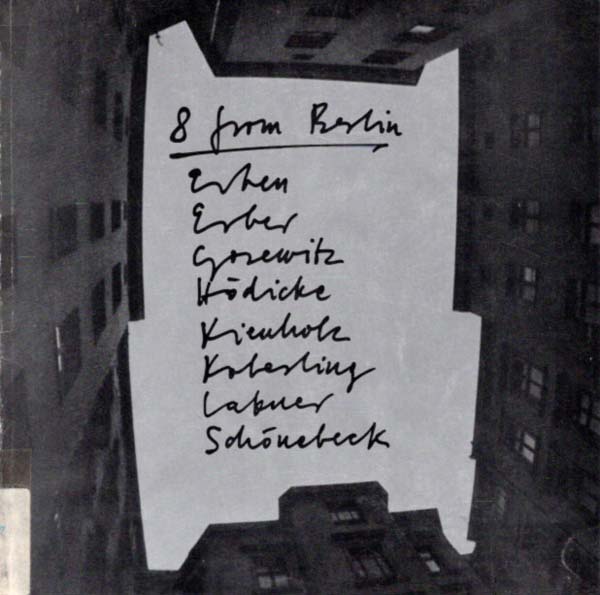 8 from Berlin
Erben
Erber
Gosewitz
Hödicke
Kienholz
Koberling
Lakner
Schönebeck